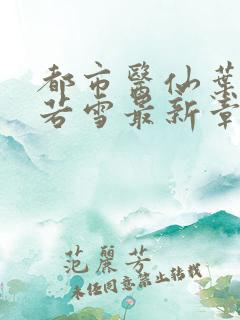 都市醫仙葉
若雪最新章
范麗芳
未经同意禁止转载